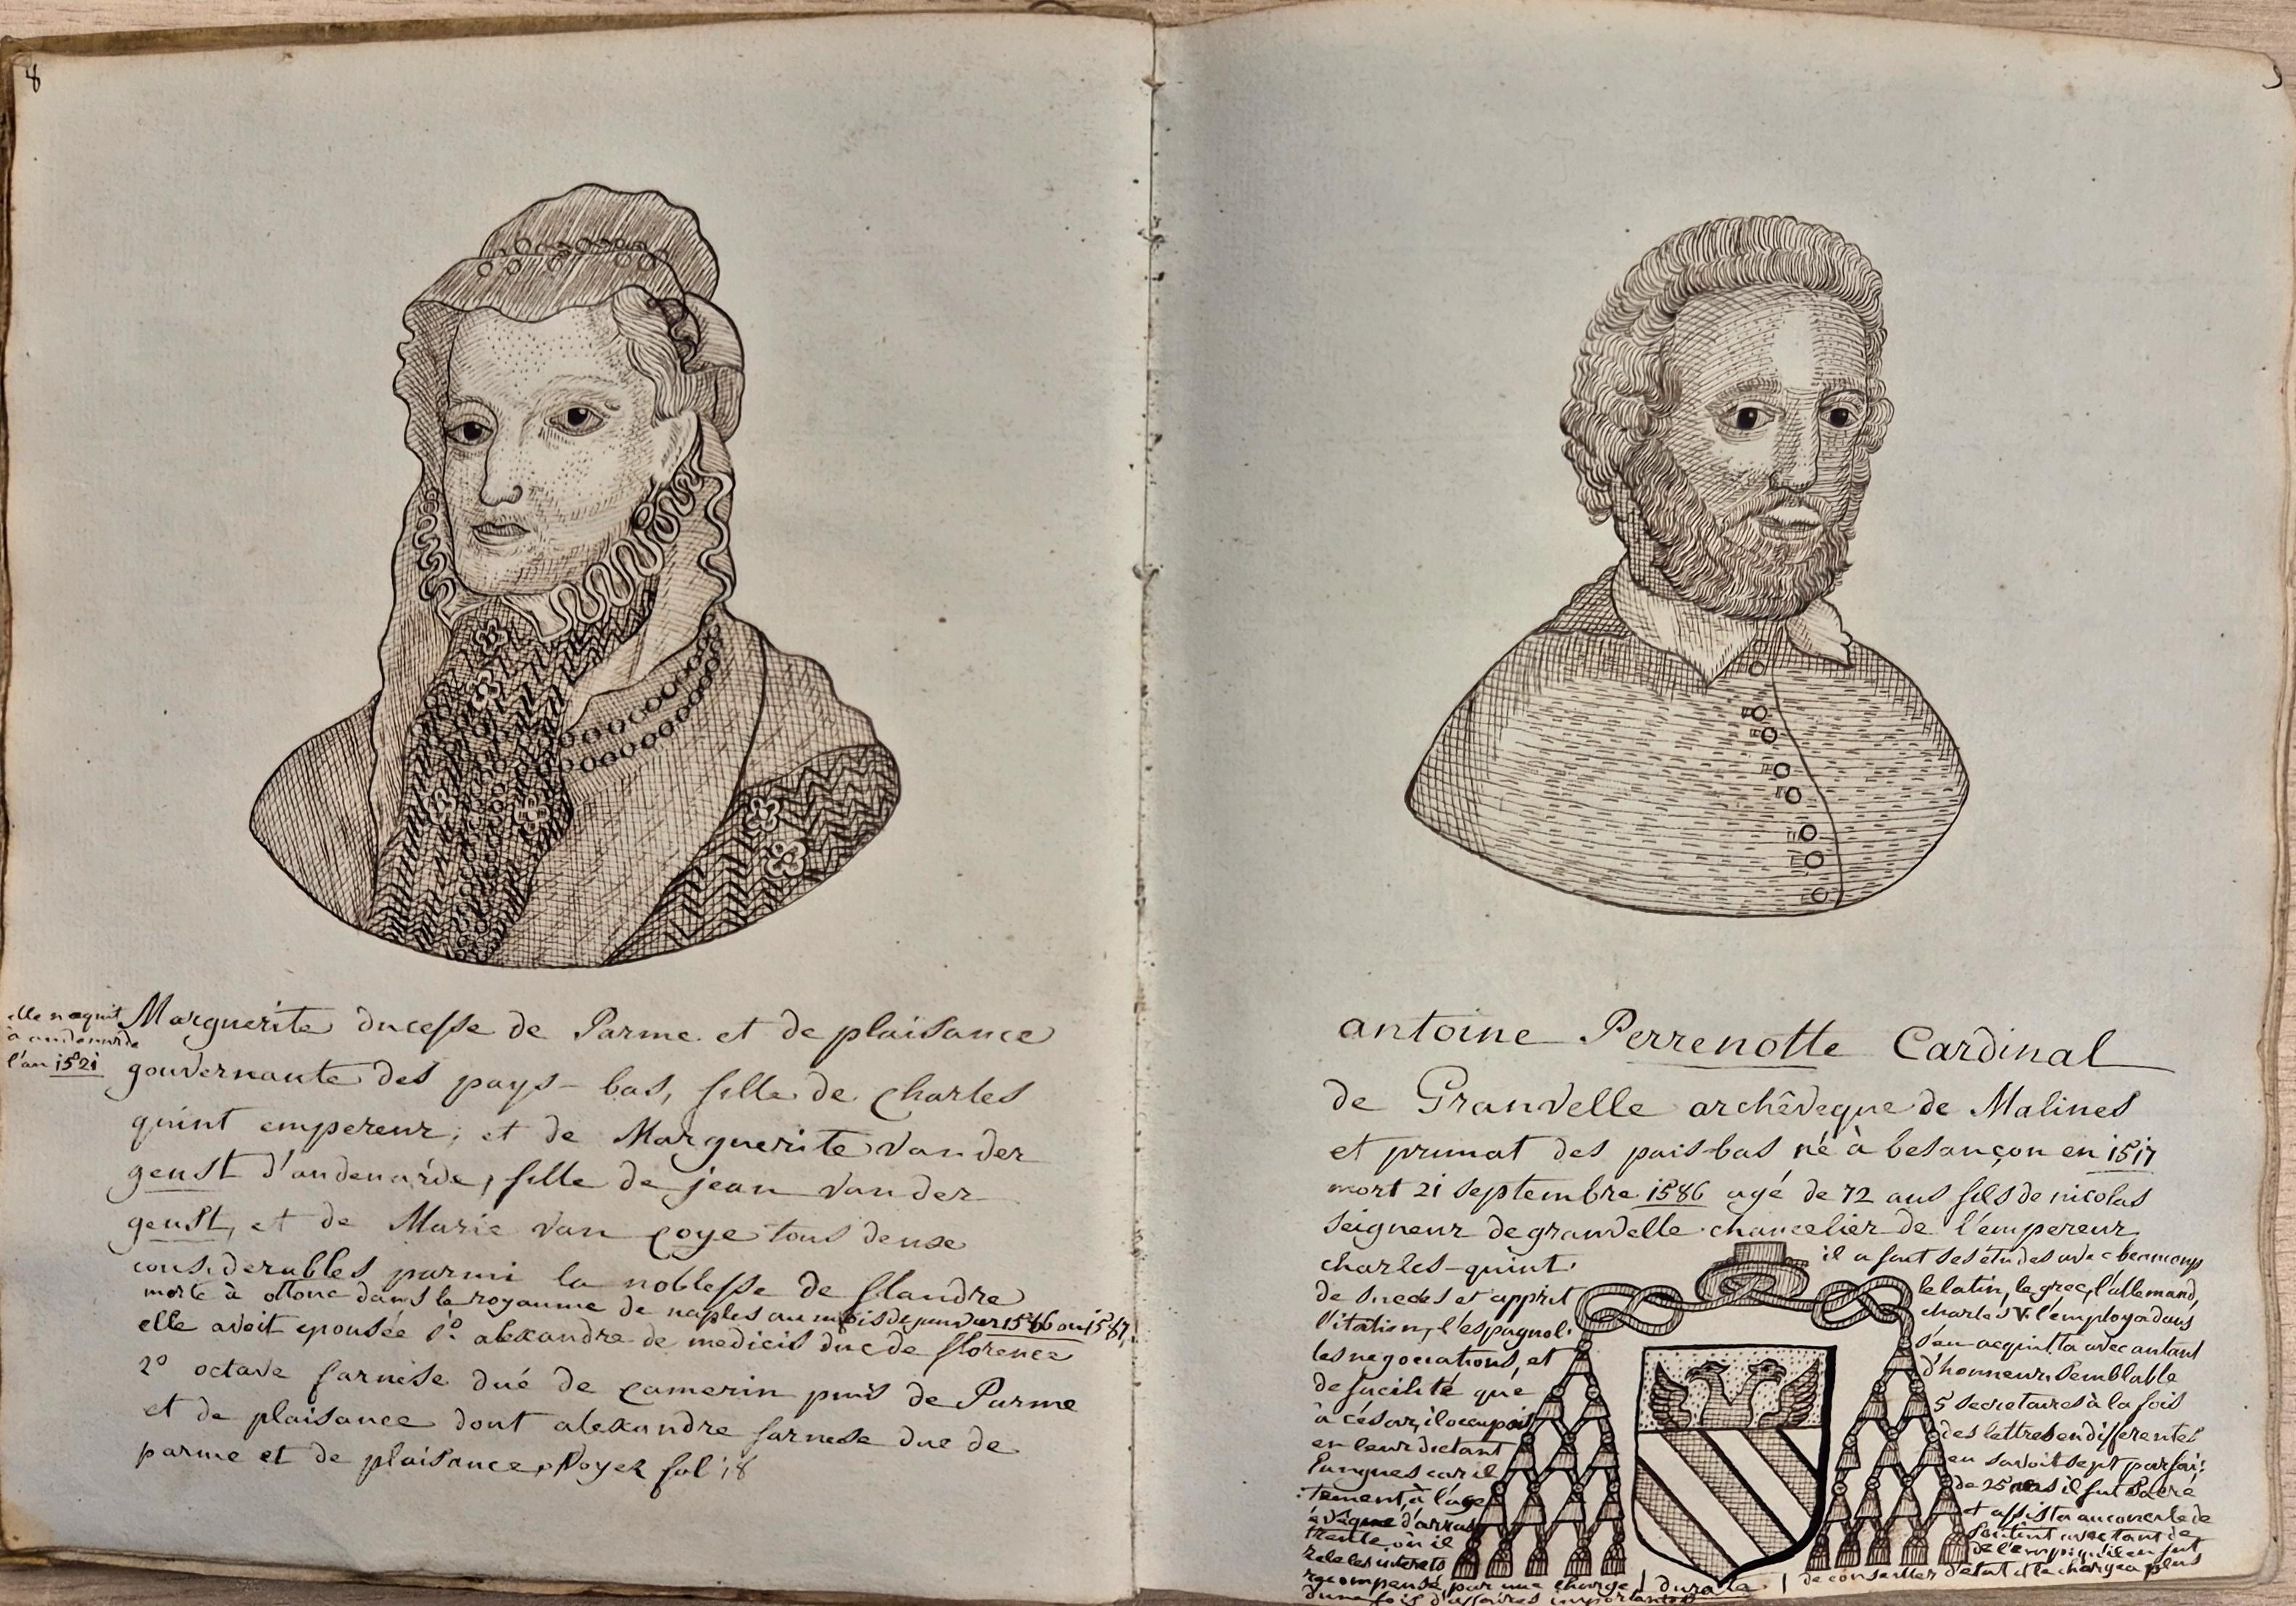 8
elle naquit
à audenarde
l'an 1521
Marguerite ducesse de Parme et de plaisance
gouvernante des pays-bas, fille de charles
quint empereur; et de Marguerite van der
genst d'audenarde, fille de jean van der
genst, et de Marie van coye tous deux
considerables parmi la noblesse de flandre
morte à ottone dans le royaume de naples au mois de janvier 1586 ou 1587,
elle avoit epousée 1º alexandre de medicis duc de florence
2º octave farnese dué de camerin puis de Parme
et de plaisance dont alexandre farnese duc de
parme et de plaisance, voyez fol 18
antoine Perrenotte Cardinal
de Granvelle archêveque de Malines
et primat des païs-bas né à besançon en 1517
mort 21 septembre 1586 agé de 72 ans fils de nicolas
seigneur de granvelle chancelier de l'empereur
charles-quint. il a fait ses études avec beaucoup
de succès et apprit le latin, le grec, l'allemand,
l'italien, l'espagnol. charles V. l'employa dans
les negociations, et s'en acquitta avec autant
de facilité que d'honneur. Semblable
à césar, il occupoit 5 secretaires à la fois
en leur dictant des lettres en differentes
langues car il en savoit sept parfai:
:tement, à l'age de 25 ans il fut sacré
évêque d'arras et assista au concile de
trente où il soutint avec tant de
zele les interets de l'empire qu'il en fut
recompensé, par une charge de conseiller d'état et le chargea plus
d'une fois d'affaires importantes
durate